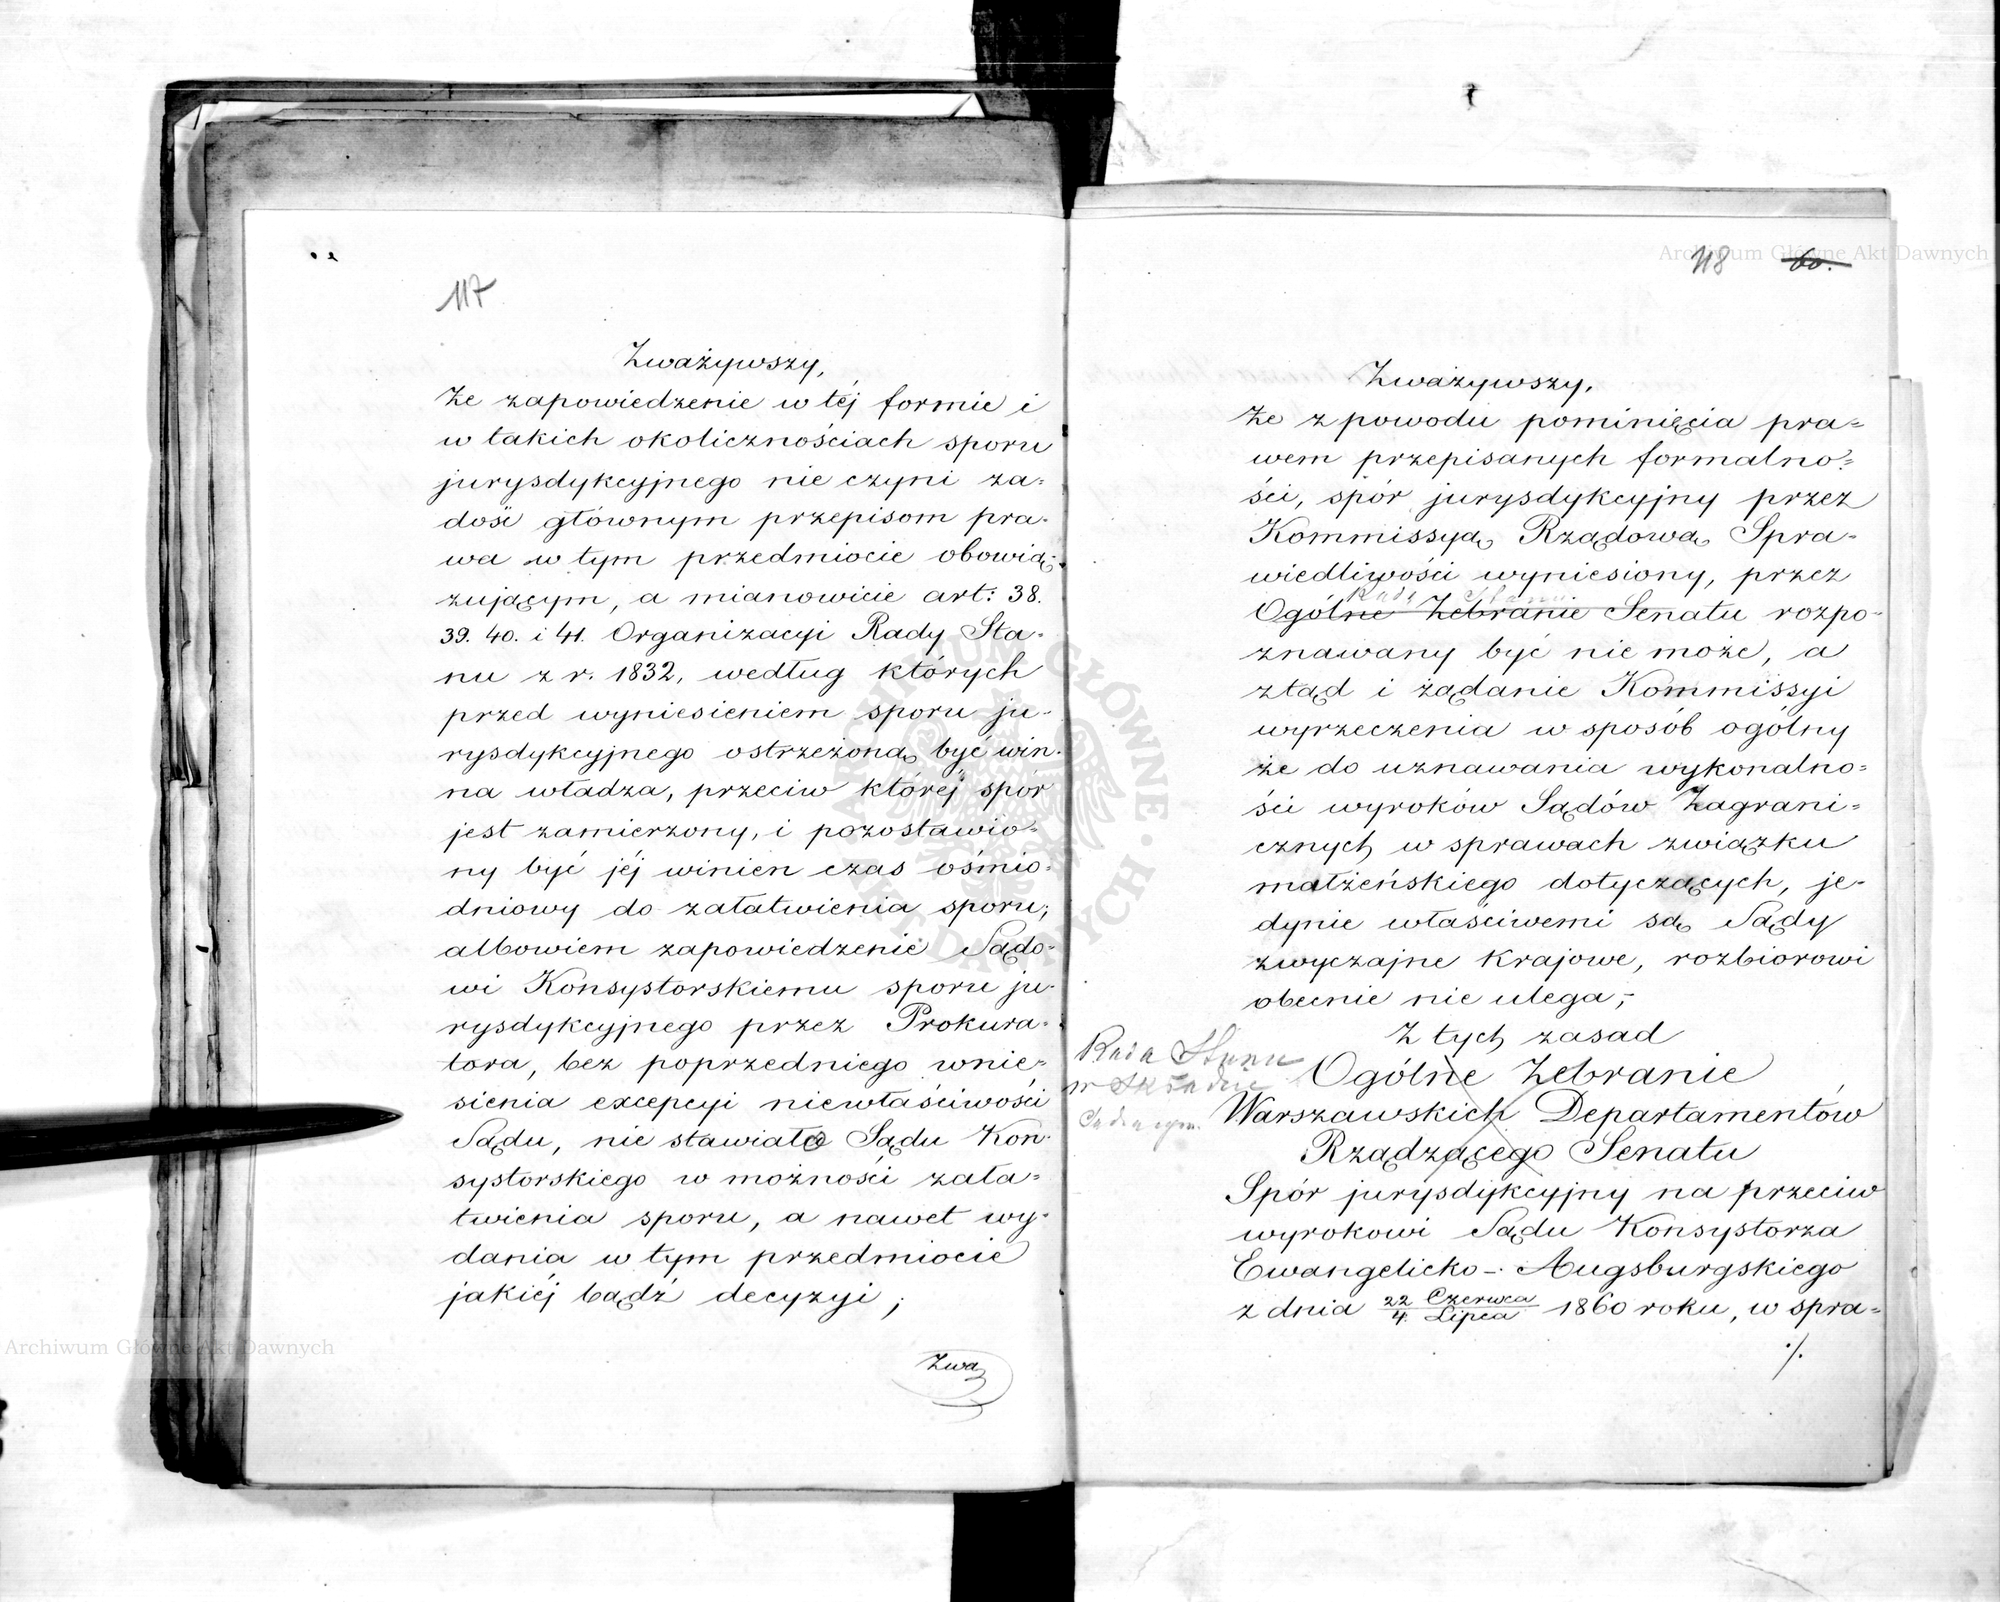 117
Zważywszy,
że zapowiedzenie w téj formie i
w takich okolicznościach sporu
jurysdykcyjnego nie czyni za-
dość głównym przepisom pra-
wa w tym przedmiocie obowią-
zującym, a mianowicie art: 38.
39. 40. i 41. Organizacyi Rady Sta-
nu z r. 1832, według których
przed wyniesieniem sporu ju-
rysdykcyjnego ostrzeżoną być win-
na władza, przeciw któréj spór
jest zamierzony, i pozostawio-
ny być jéj winien czas ośmio-
dniowy do załatwienia sporu;
albowiem zapowiedzenie Sądo-
wi Konsystorskiemu sporu ju-
rysdykcyjnego przez Prokura-
tora, bez poprzedniego wnie-
sienia excepcyi niewłaściwości
Sądu, nie stawiało Sądu Kon-
systorskiego w możności zała-
twienia sporu, a nawet wy-
dania w tym przedmiocie
jakiéj bądź decyzyi;
Zwa
118 60.
Zważywszy,
że z powodu pominięcia pra-
wem przepisanych formalno-
ści, spór jurysdykcyjny przez
Kommissyą Rządową Spra-
wiedliwości wyniesiony, przez
Radę Stanu
Ogólne Zebranie Senatu rozpo-
znawany być nie może, a
ztąd i żądanie Kommissyi
wyrzeczenia w sposób ogólny
że do uznawania wykonalno-
ści wyroków Sądów Zagrani-
cznych w sprawach związku
małżeńskiego dotyczących, je-
dynie właściwemi są Sądy
zwyczajne krajowe, rozbiorowi
obecnie nie ulega;-
Z tych zasad
Rada Stanu
w Składzie
Sądzącym.
Ogólne Zebranie
Warszawskich Departamentów
Rządzącego Senatu
Spór jurysdykcyjny na przeciw
wyrokowi Sądu Konsystorza
Ewangelicko-Augsburgskiego
z dnia 22 Czerwca / 4. Lipca 1860 roku, w spra-
./.
Archiwum Główne Akt Dawnych
Archiwum Główne Akt Dawnych
ARCHIWUM GŁÓWNE AKT DAWNYCH